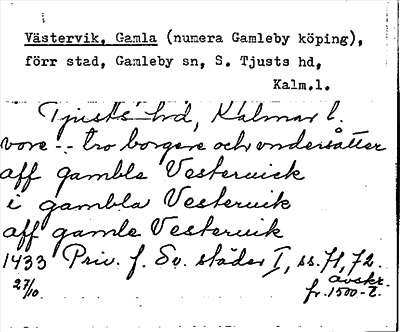 Västervik, Gamla (numera Gamleby köping),
förr stad, Gamleby sn, S. Tjusts hd,
Kalm.l.
Tjusts hd, Kalmar l.
vore -- tro borgere och vndersåtter
aff gambla Vesteruick
i gambla Vesteruik
aff gamle Vesteruik
1433 Priv. f. Sv. städer I, ss. 71, 72.
27/10. avskr.
fr. 1500-t.